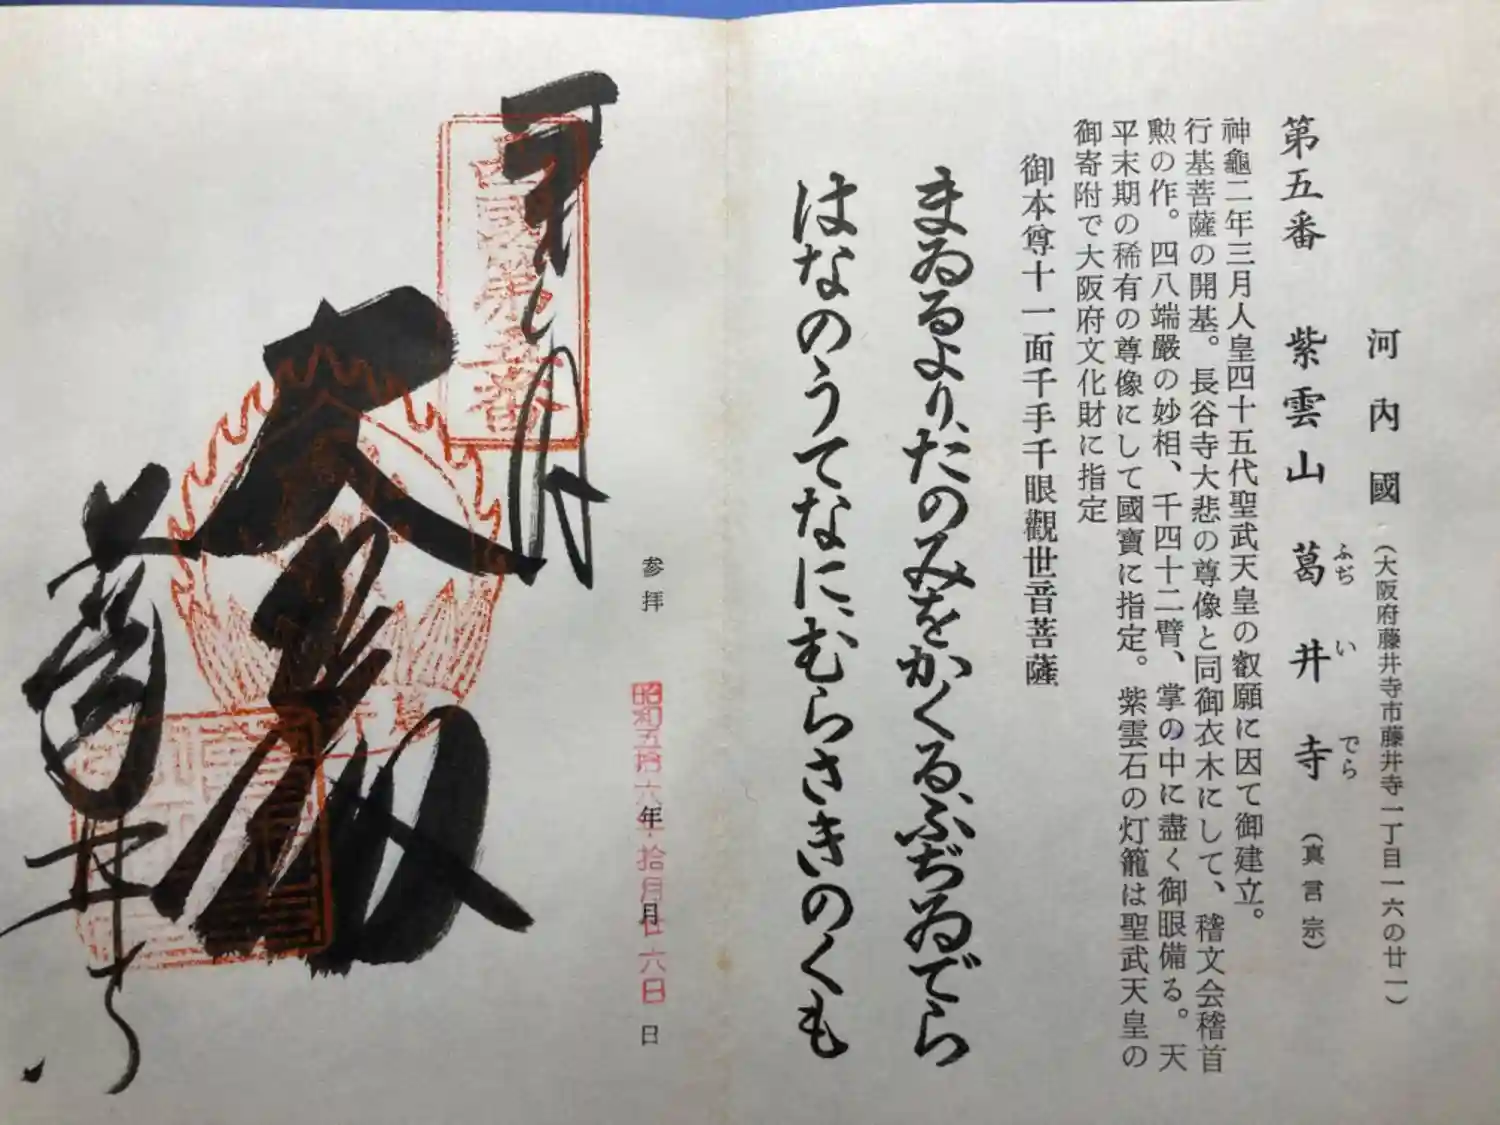 河内國(大阪府藤井寺市藤井寺一丁目一六の廿一)
第五番 紫雲山葛井寺(真言宗)
ふぢ い でら
神龜二年三月人皇四十五代聖武天皇の叡願に因て御建立。
行基菩薩の開基。長谷寺大悲の尊像と同御衣木にして、稽文会稽首
勲の作。四八端嚴の妙相、千四十二臂、掌の中に盡く御眼備る。天
平末期の稀有の尊像にして國寶に指定。紫雲石の灯籠は聖武天皇の
御寄附で大阪府文化財に指定
御本尊十一面千手千眼觀世音菩薩
まゐるより、たのみをかくる、ふぢゐでら
はなのうてなに、むらさきのくも
参拝 年 月 日
昭和五拾六年拾月廿六日
西國第五番
大悲殿
葛井寺